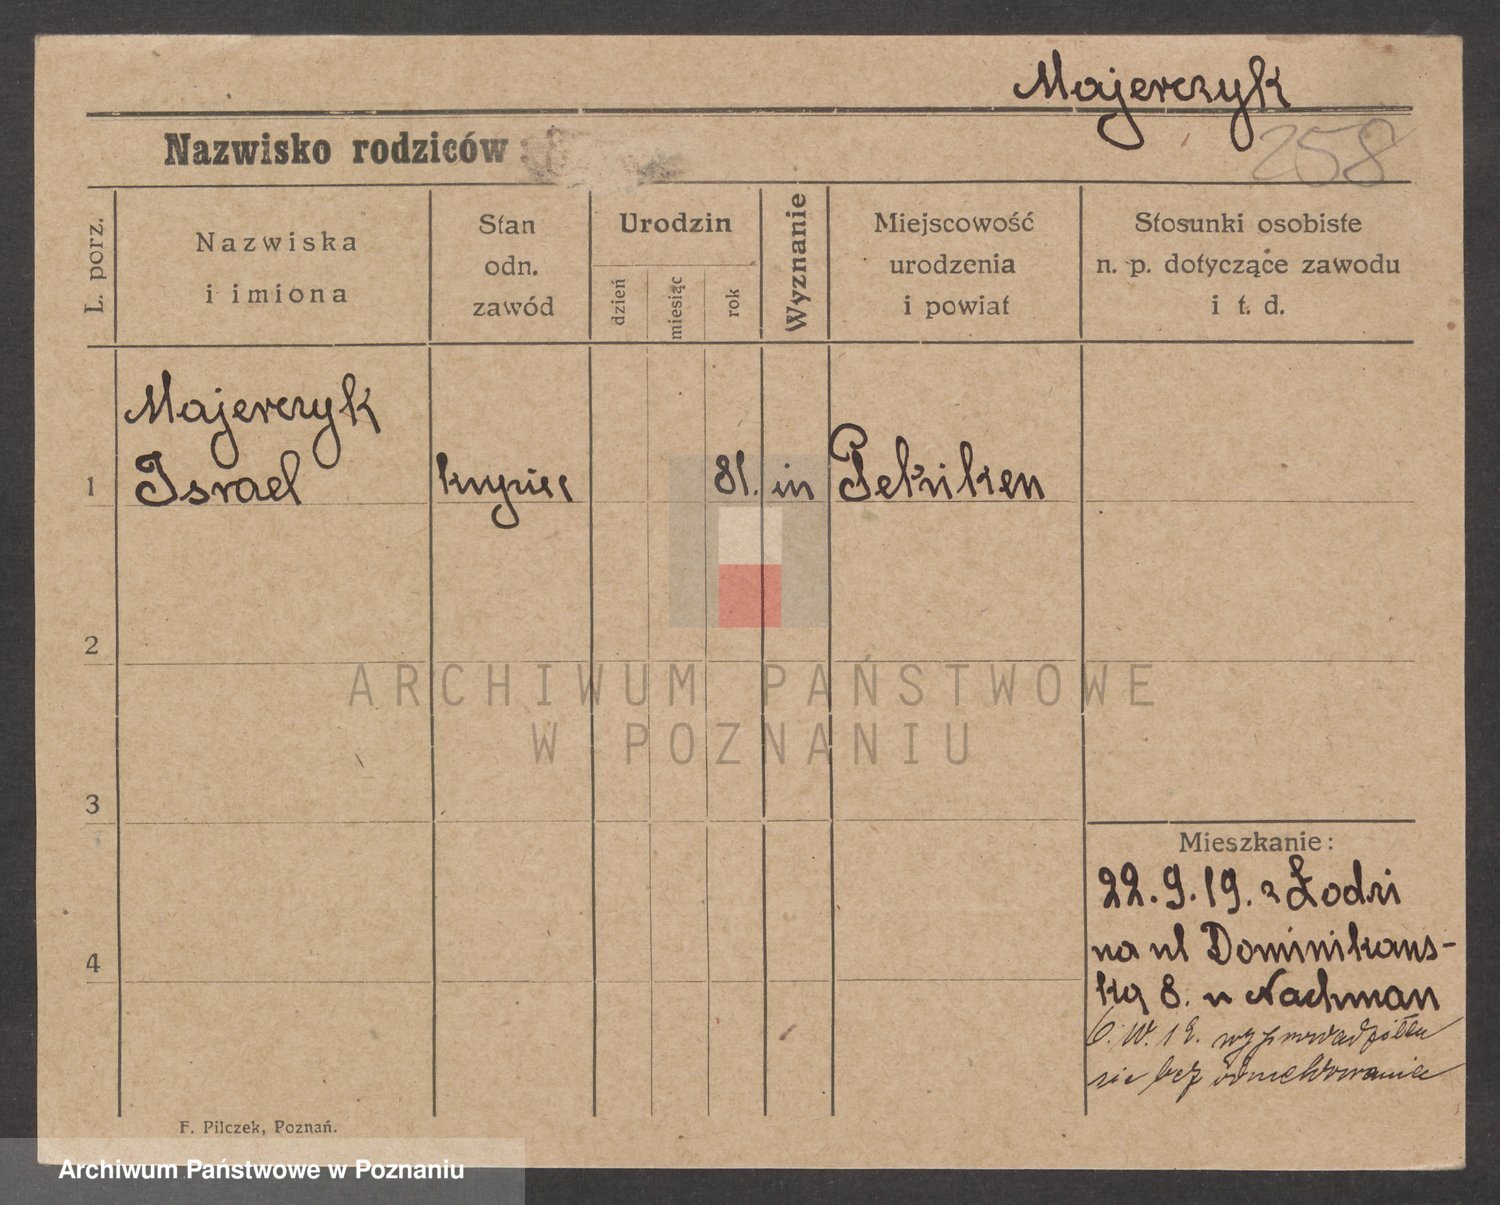 Majerczyk
258
Nazwisko rodziców
L. porz.
Nazwiska
i imiona
Stan
odn.
zawód
Urodzin
dzień
miesiąc
rok
Wyznanie
Miejscowość
urodzenia
i powiat
Stosunki osobiste
n. p. dotyczące zawodu
i t. d.
Majerczyk
1 Israel kupiec 81. in
2
ARCHIWUM PAŃSTWOWE
W POZNANIU
3
Mieszkanie:
22.9.19. z Łodzi
na ul Dominikans-
4
ką 8. u Nachman
wyprowadził
się bez odmeldowania
F. Pilczek, Poznań.
Archiwum Państwowe w Poznaniu